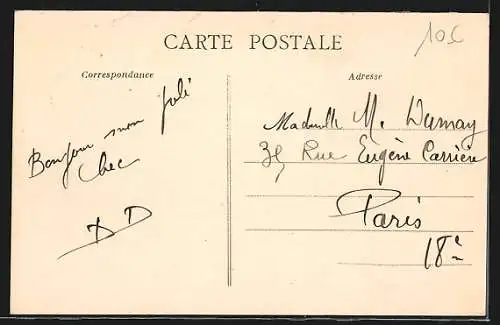 CARTE POSTALE
10€
Correspondance
Bonjour mon joli
Chec
DD
Adresse
Madmlle M. Dumay
35 Rue Eugène Carrière
Paris
18e